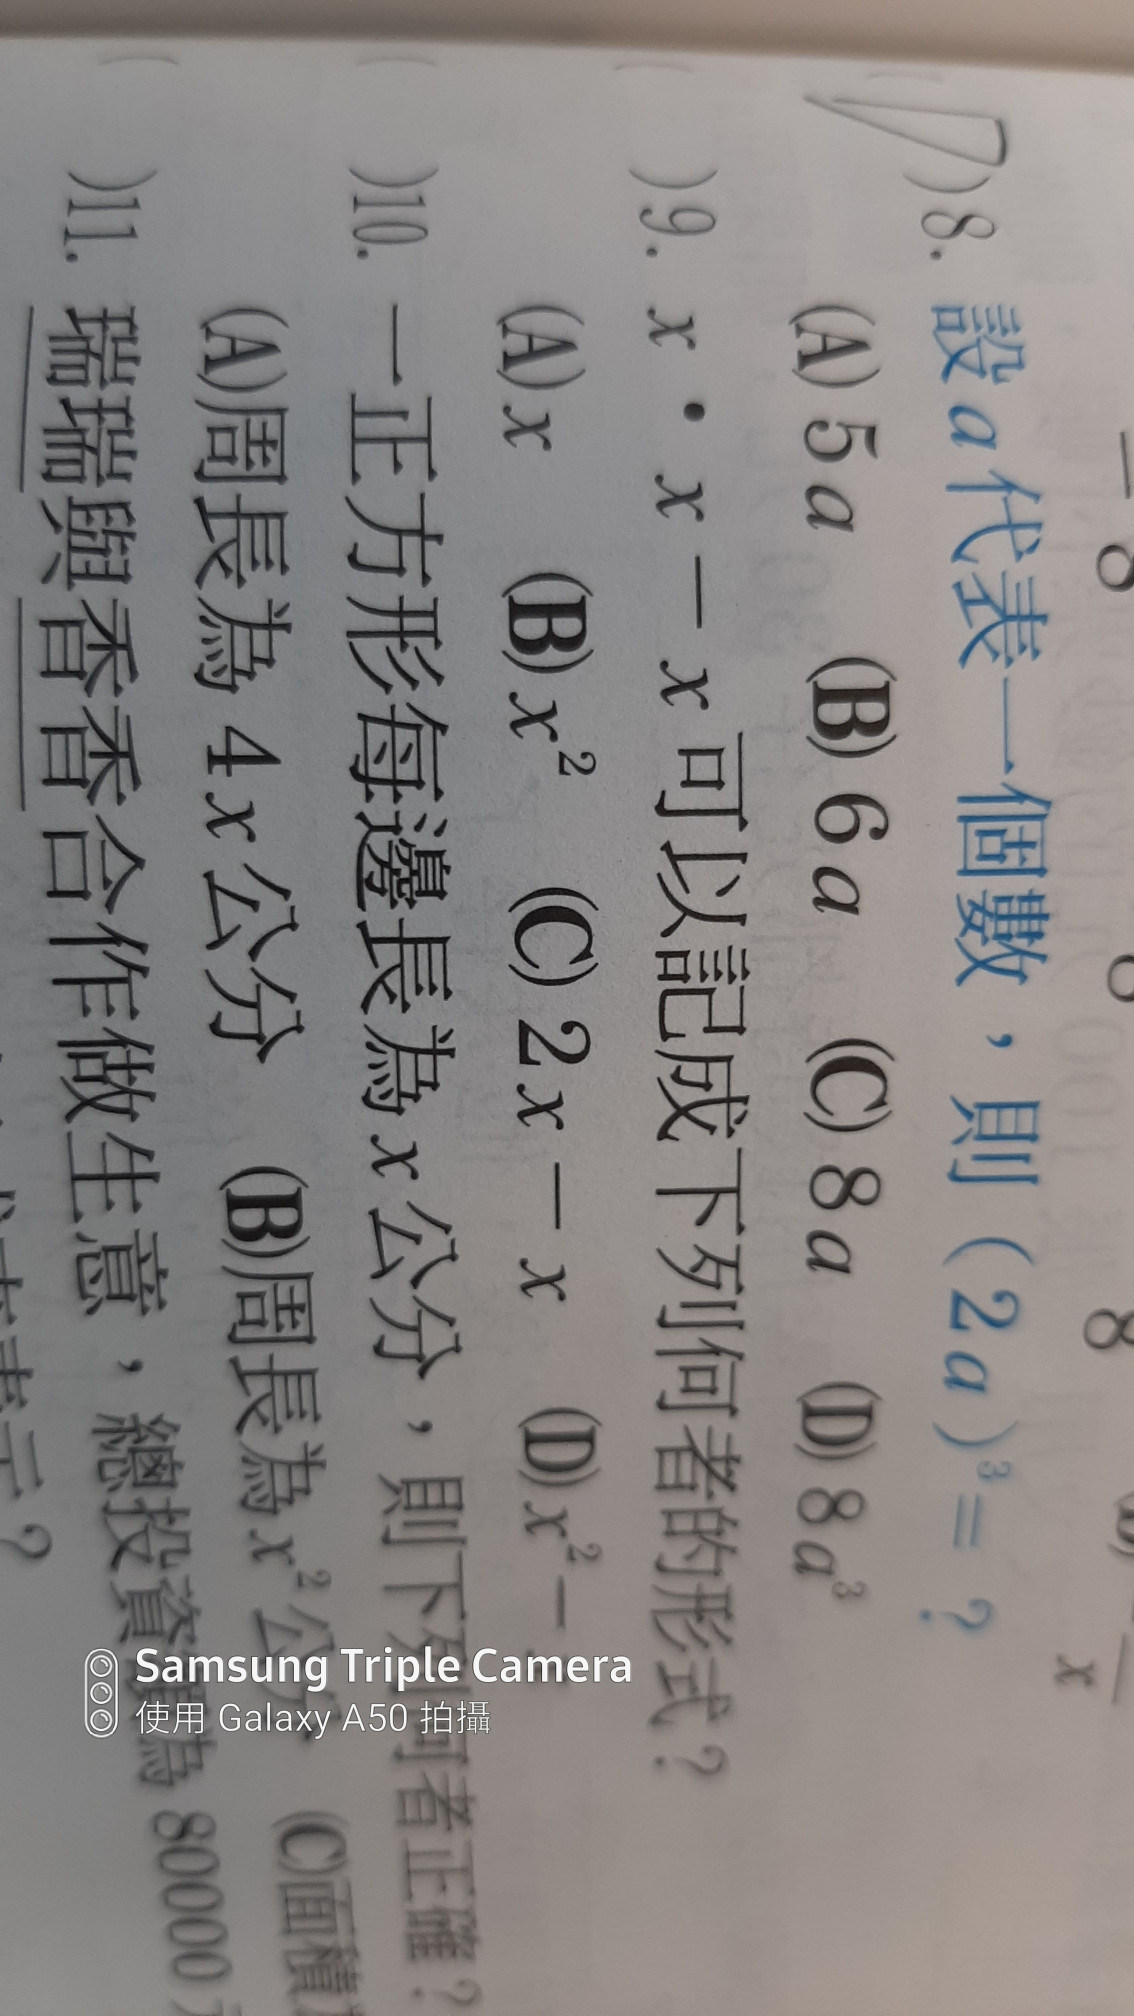 8. 設 a 代表一個數，則 (2a)³=？
(A) 5a (B) 6a (C) 8a (D) 8a³
)9. x·x－x 可以記成下列何者的形式？
(A) x (B) x² (C) 2x－x (D) x²－
)10. 一正方形每邊長為 x 公分，則下列何者正確？
(A)周長為 4x 公分 (B)周長為 x² 公分 (C)面積
)11. 瑞瑞與香香合作做生意，總投資額為 80000
表示？
Samsung Triple Camera
使用 Galaxy A50 拍攝